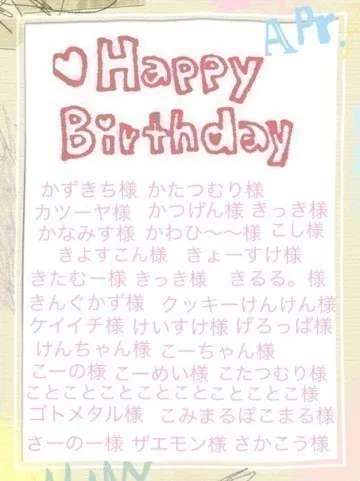 Apr.
♡Happy
Birthday
かずきち様 かたつむり様
カツーヤ様 かつげん様 きっき様
かなみす様 かわひ〜〜様 こし様
きよすこん様 きょーすけ様
きたむー様 きっき様 きるる。様
きんぐかず様 クッキーけんけん様
ケイイチ様 けいすけ様 げろっぱ様
けんちゃん様 こーちゃん様
こーの様 こーめい様 こたつむり様
ことことことことことことことこ様
ゴトメタル様 こみまるぽこまる様
さーのー様 ザエモン様 さかこう様